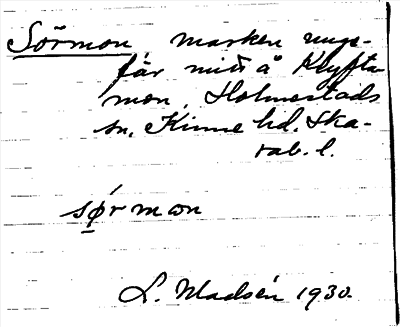 Sörmon, marken unge-
fär midt å Klyfta-
mon, Holmestads
sn, Kinne hd. Ska-
rab. l.
sǿrmon
L. Madsén 1930.